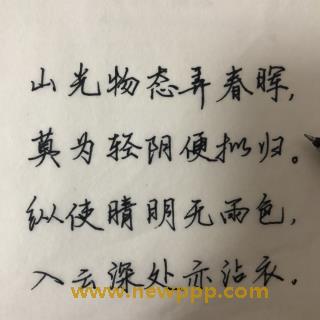 山光物态弄春晖，
莫为轻阴便拟归。
纵使晴明无雨色，
入云深处亦沾衣．
www.newppp.com